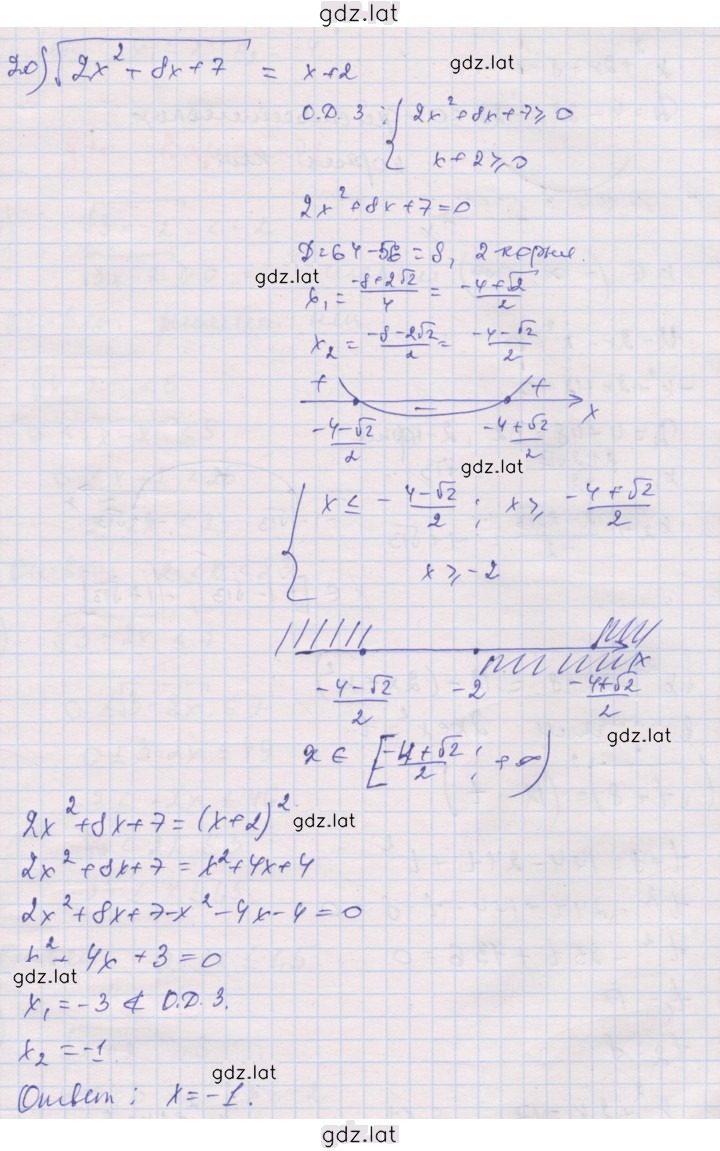 gdz.lat
20) √(2x² + 8x + 7) = x+2
gdz.lat
О.D.З : { 2x² + 8x + 7 ≥ 0
x + 2 ≥ 0
2x² + 8x + 7 = 0
D = 64 - 56 = 8, 2 корня.
gdz.lat
x₁ = (-8+2√2)/4 = (-4+√2)/2
x₂ = (-8-2√2)/2 = (-4-√2)/2
+ − + x
(-4-√2)/2 (-4+√2)/2
gdz.lat
{ x ≤ - (4-√2)/2 ; x ≥ (-4+√2)/2
x ≥ -2
x
(-4-√2)/2 -2 (-4+√2)/2
gdz.lat
x ∈ [(-4+√2)/2 ; +∞)
2x² + 8x + 7 = (x+2)²
gdz.lat
2x² + 8x + 7 = x² + 4x + 4
2x² + 8x + 7 - x² - 4x - 4 = 0
x² + 4x + 3 = 0
gdz.lat
x₁ = -3 ∉ О.D.З.
x₂ = -1.
gdz.lat
Ответ : x = -1.
gdz.lat